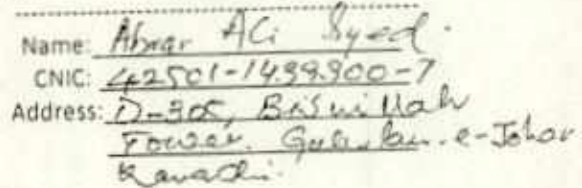 Name: Abrar Ali Syed.
CNIC: 42501-1499900-7
Address: D-305, Bismillah
Tower. Gulistan-e-Johar
Karachi.